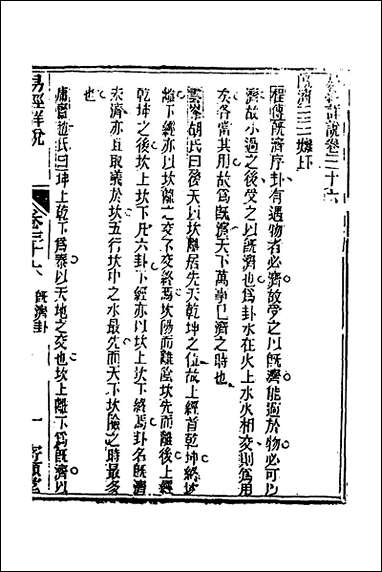 易經詳說卷三十六
既濟䷾ 離下
程傳既濟序卦有過物者必濟故受之以既濟能過於物必可以
濟故小過之後受之以既濟也爲卦水在火上水火相交則爲用
矣各當其用故爲既濟天下萬事已濟之時也
雲峯胡氏曰後天以坎離居先天乾坤之位故上經首乾坤終坎
離下經亦以坎離之交不交終焉坎陽而離陰坎先而離後上經
乾坤之後坎上坎下凡六卦下經亦以坎上坎下終焉卦名既濟
未濟亦且取義於坎五行坎中之水最先而天下坎險之時最多
也
庸齋趙氏曰坤上乾下爲泰以天地之交也坎上離下爲既濟以
易經詳說
卷三十六 既濟卦
一